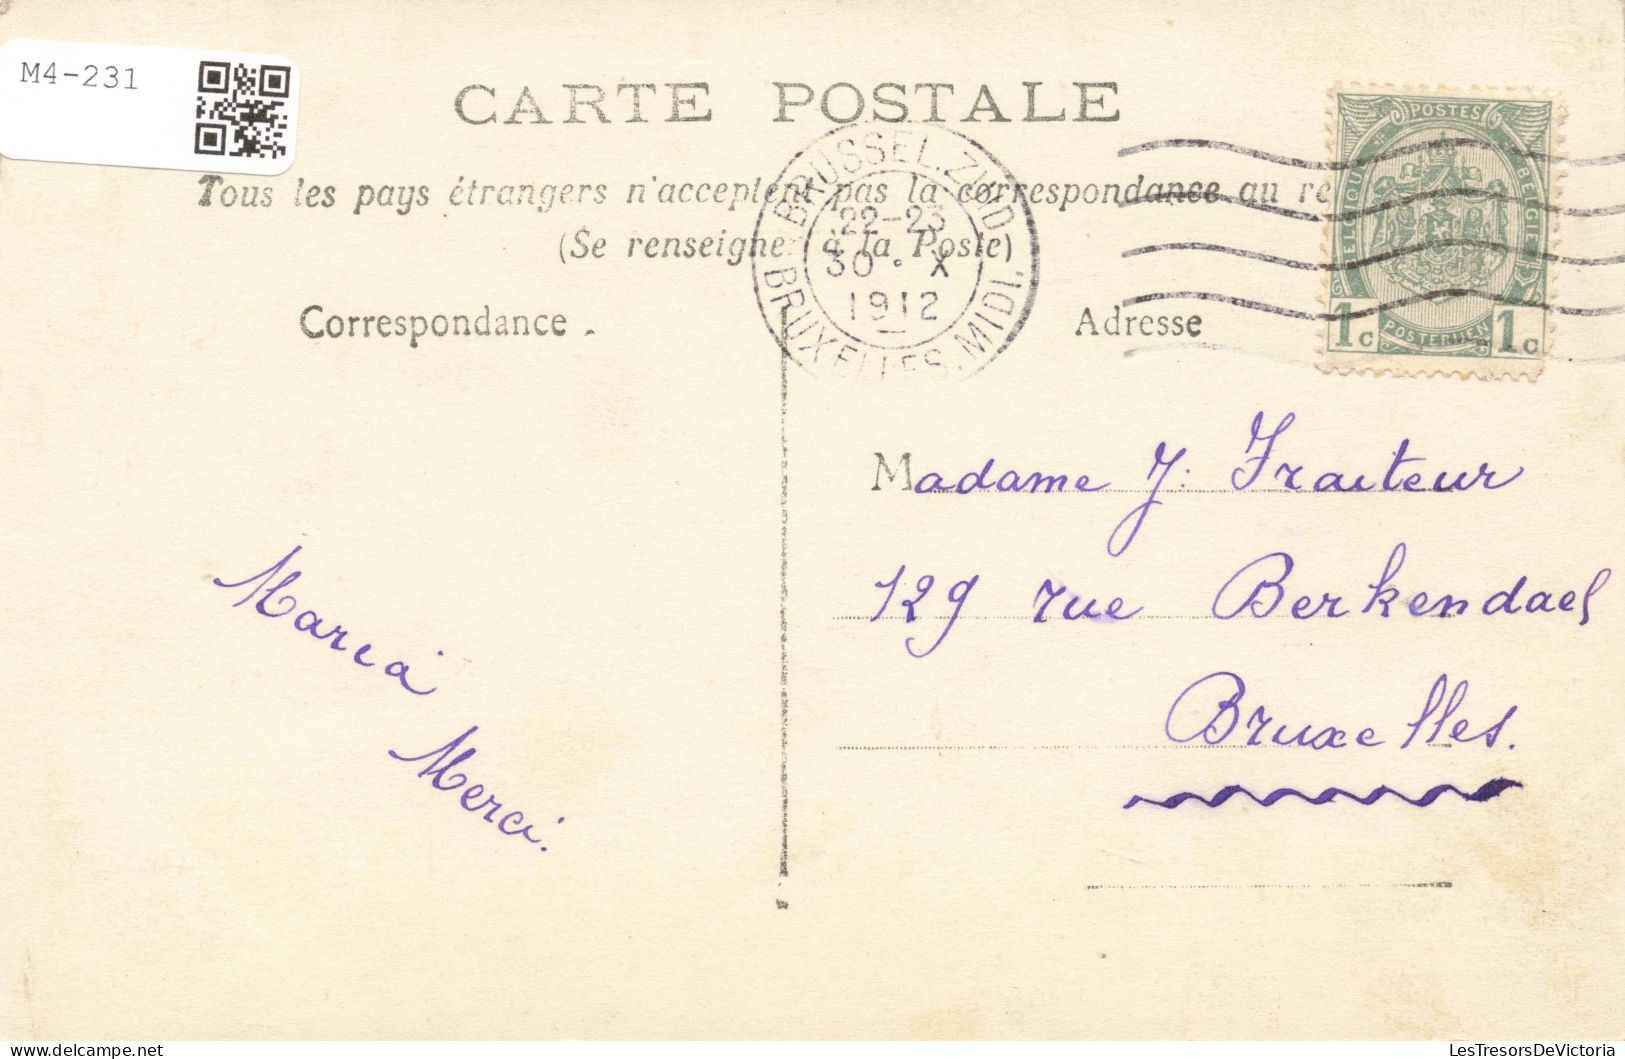 M4-231
CARTE POSTALE
Tous les pays étrangers n'acceptent pas la correspondance au
(Se renseigner à la Poste)
BRUSSEL.ZUID
22-23
30 • X
1912
BRUXELLES.MIDI.
POSTES
BELGIQUE
BELGIE
1c
POSTERIJEN
1c
Correspondance
Adresse
Madame J. Traiteur
129 rue Berkendael
Bruxelles.
Maria
Merci.
LesTresorsDeVictoria